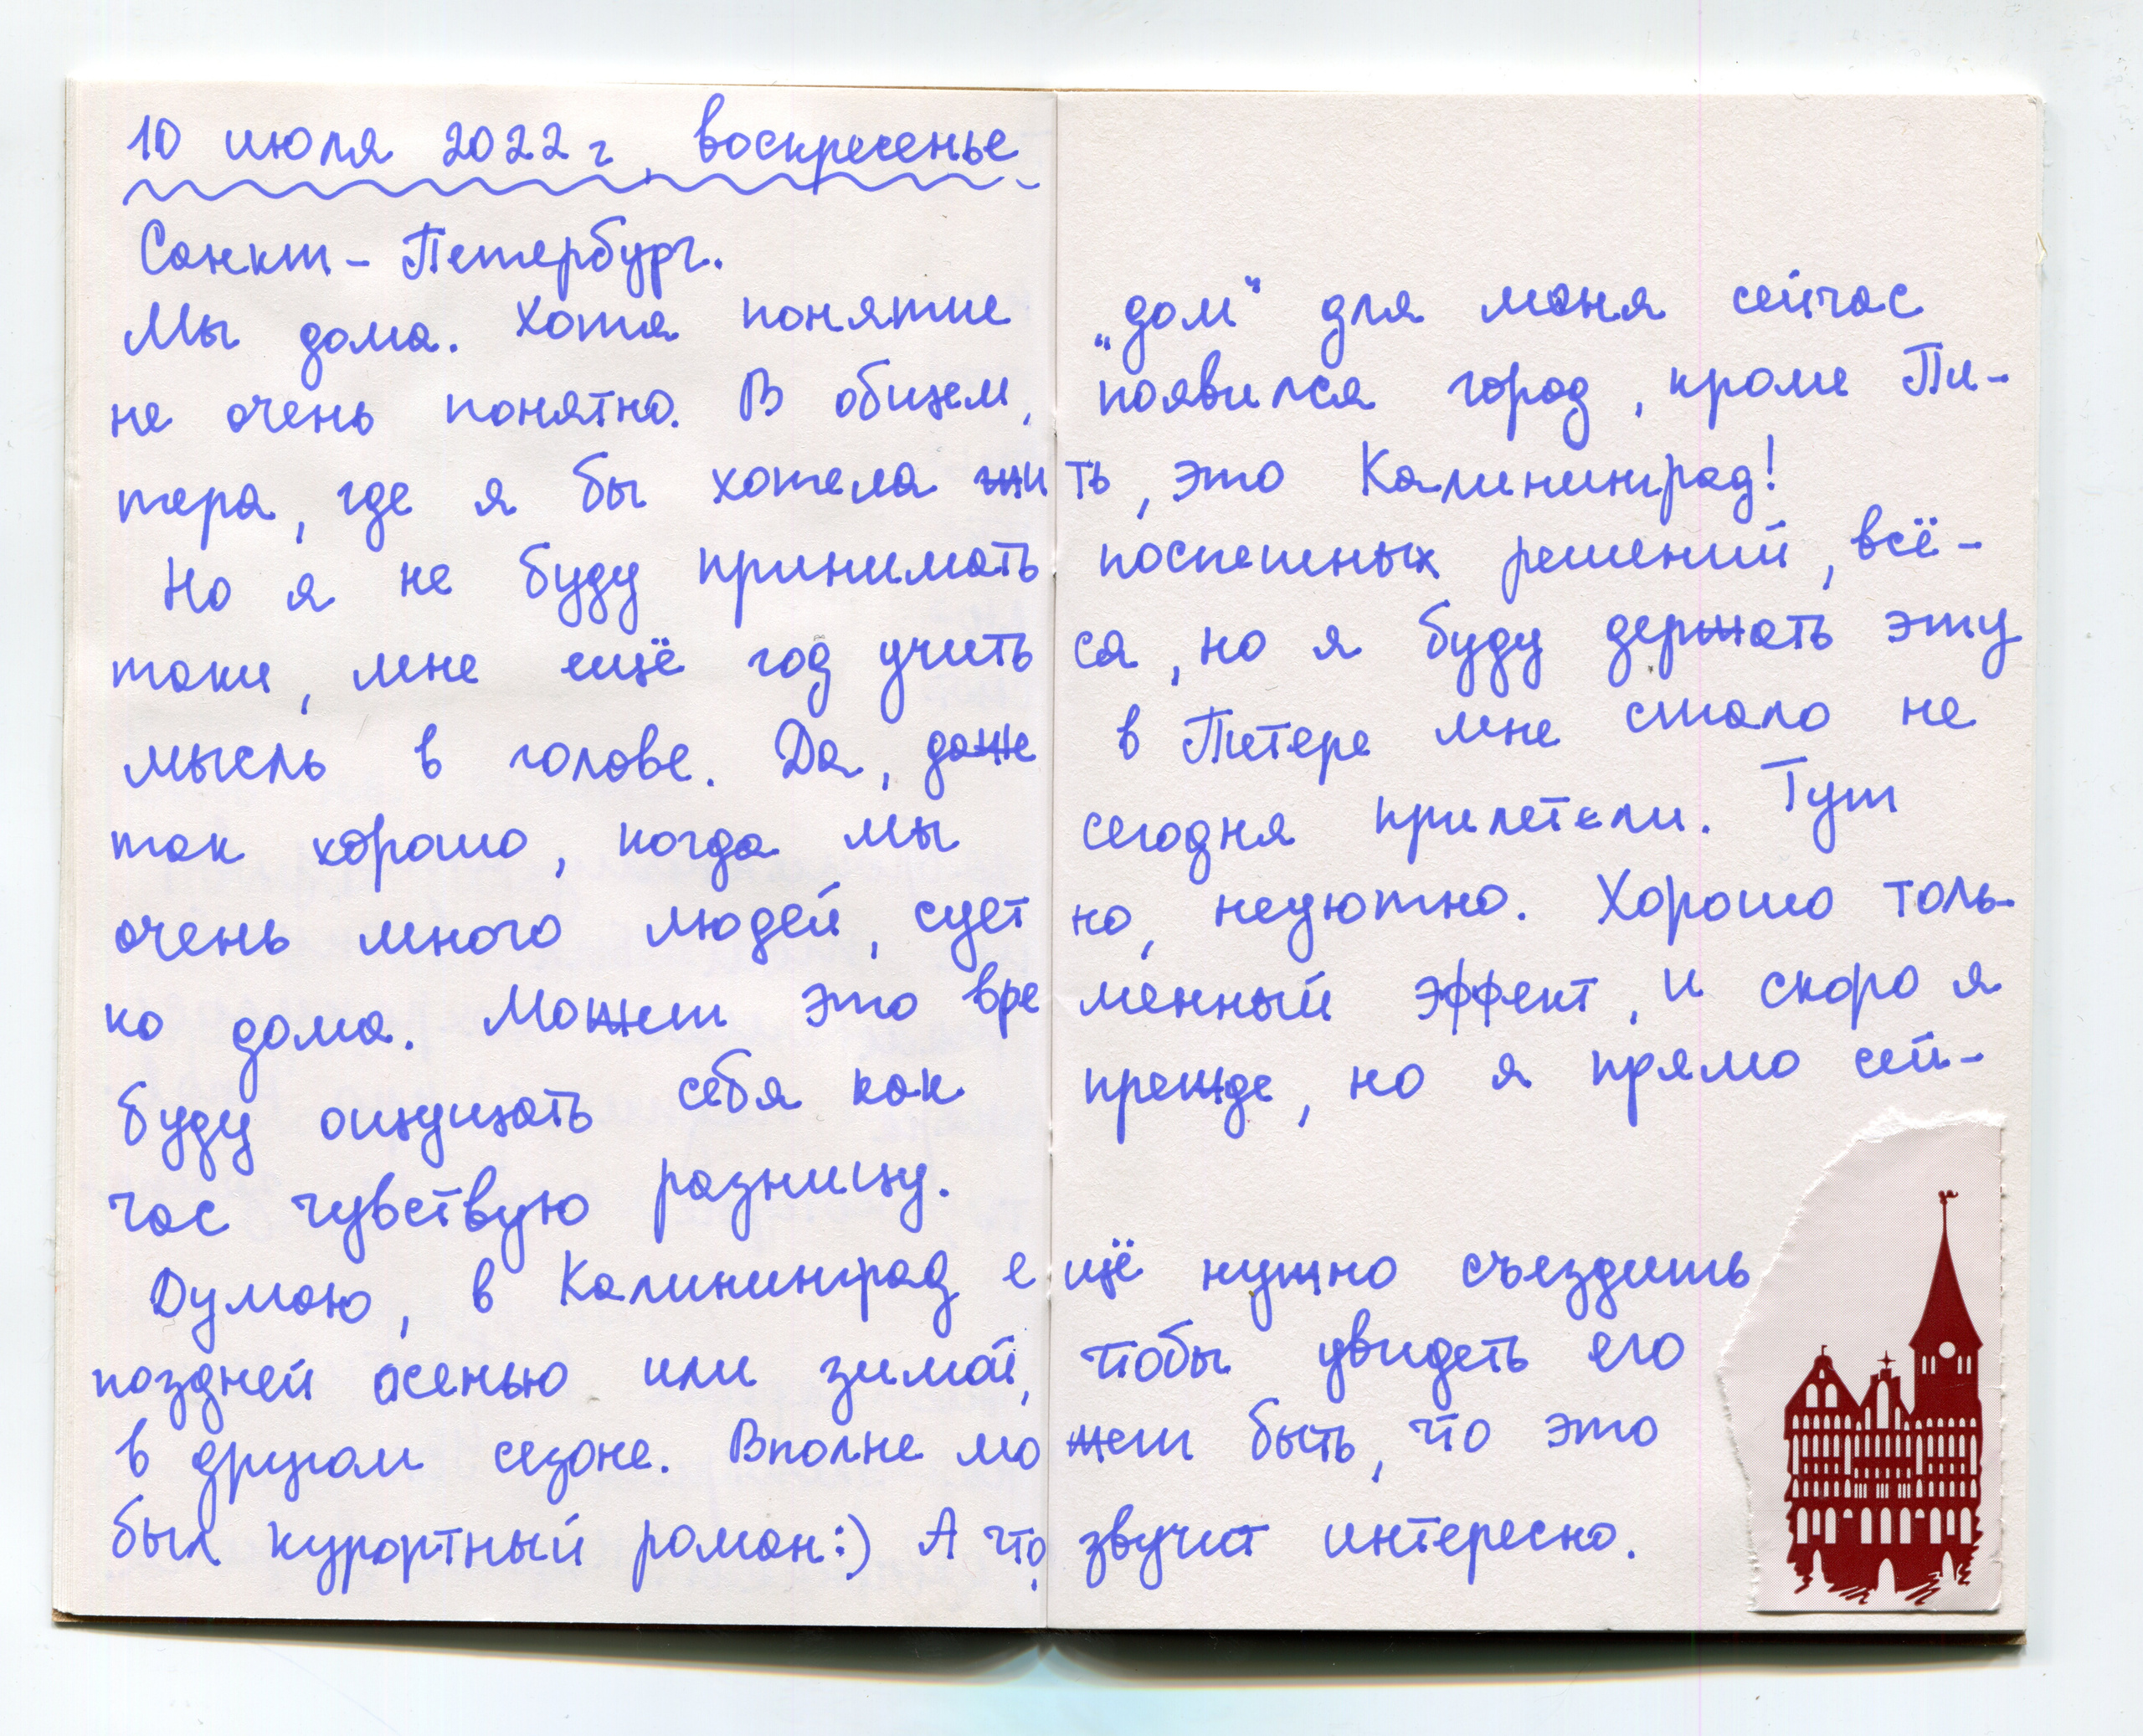 10 июля 2022 г, воскресенье
Санкт-Петербург.
Мы дома. Хотя понятие „дом“ для меня сейчас
не очень понятно. В общем, появился город, кроме Пи-
тера, где я бы хотела жить, это Калининград!
Но я не буду принимать поспешных решений, всё-
таки, мне ещё год учиться, но я буду держать эту
мысль в голове. Да, даже в Питере мне стало не
так хорошо, когда мы сегодня прилетели. Тут
очень много людей, суетно, неуютно. Хорошо толь-
ко дома. Может это временный эффект, и скоро я
буду ощущать себя как прежде, но я прямо сей-
час чувствую разницу.
Думаю, в Калининград ещё нужно съездить
поздней осенью или зимой, чтобы увидеть его
в другом сезоне. Вполне может быть, что это
был курортный роман:) А что, звучит интересно.